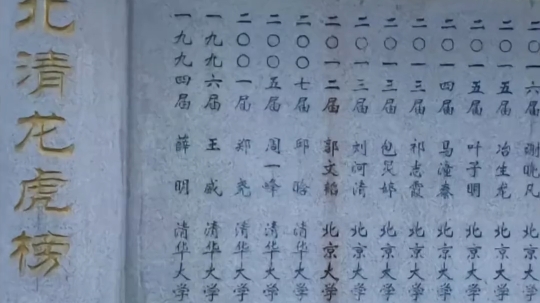 北清龙虎榜
一九九四届 薛明 清华大学
一九九六届 王威 清华大学
二〇〇一届 郑尧 清华大学
二〇〇五届 周一峰 清华大学
二〇〇七届 邱晗 清华大学
二〇一二届 郭文韬 北京大学
二〇一三届 刘河清 北京大学
二〇一三届 包炅婷 北京大学
二〇一三届 祁志霞 北京大学
二〇一四届 马潼泰 北京大学
二〇一五届 叶子明 北京大学
二〇一五届 冶生龙 北京大学
二〇一六届 谢晓凡 北京大学